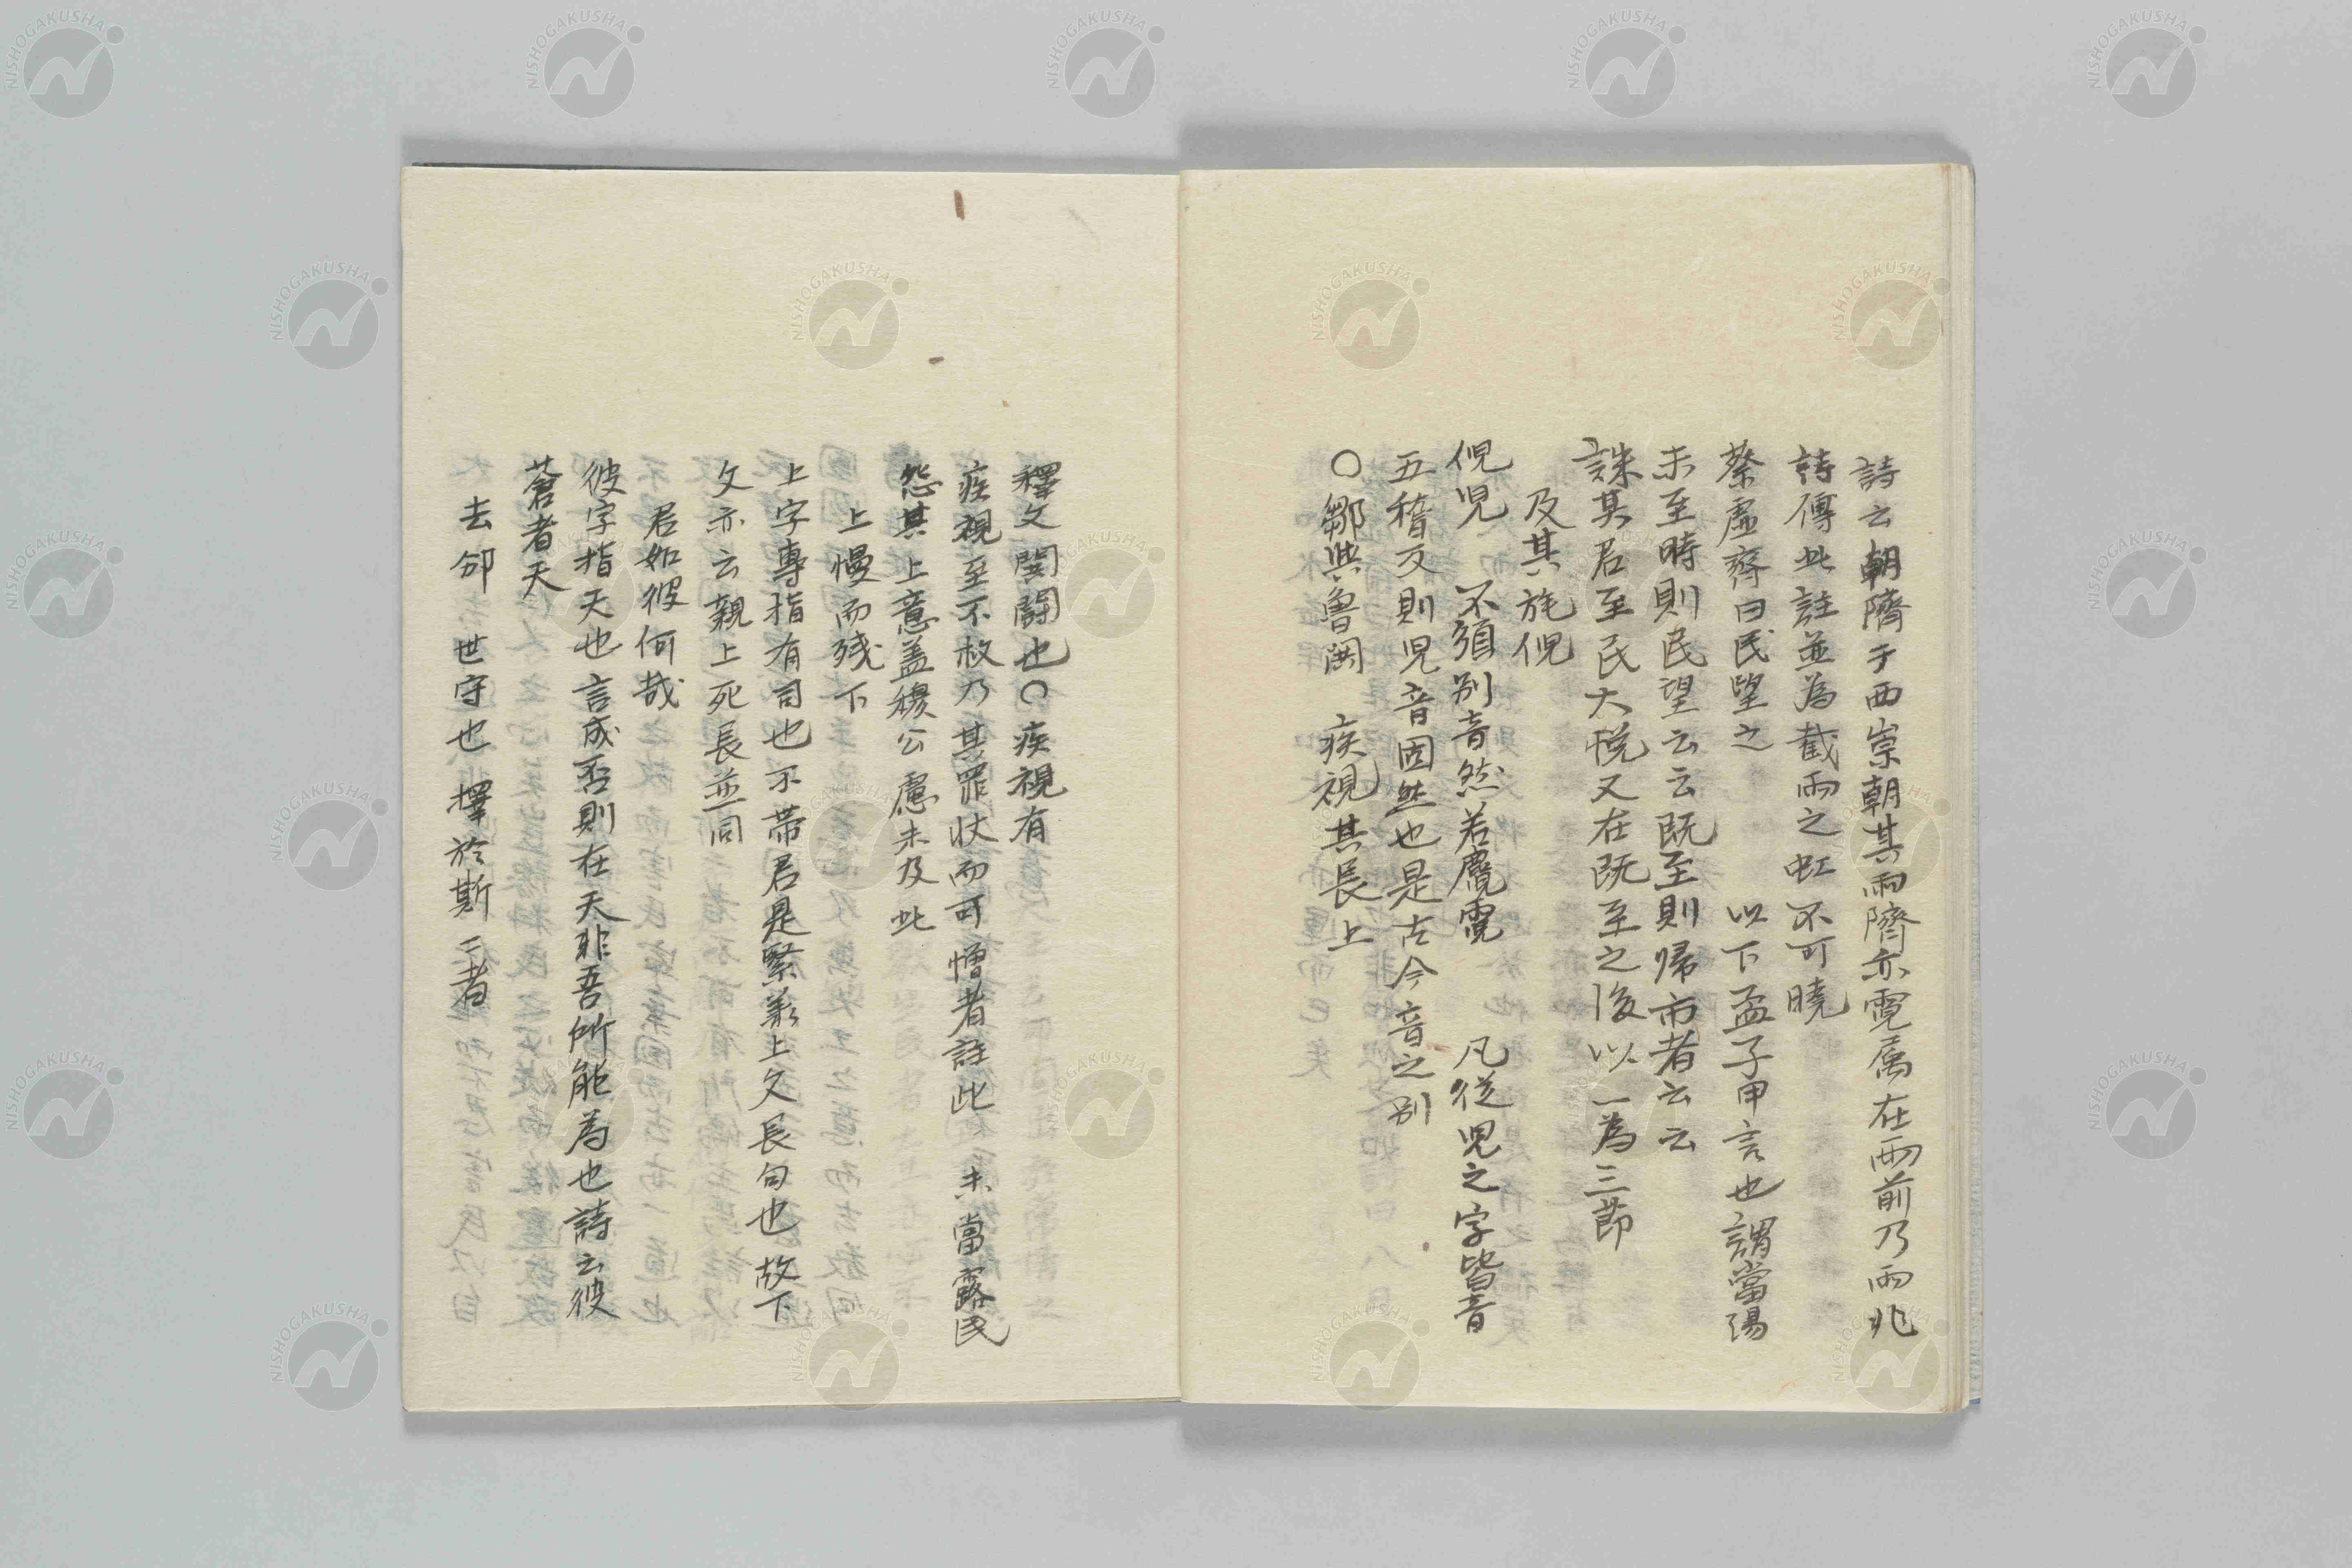 詩云朝隮于西崇朝其雨隮亦霓属在雨前乃雨兆
詩傳此註並為截雨之虹不可曉
蔡虛齋曰民望之 以下孟子申言也謂當湯
未至時則民望云云既至則帰市者云云
誅其君至民大悦又在既至之後以一為三節
及其旄倪
倪児 不須别音然若麑霓 凡従児之字皆音
五稽反則児音固然也是古今音之别
〇鄒與魯鬨 疾視其長上
釋文鬨鬪也〇疾視有
疾視至不救乃其罪状而可憎者註此 未當露民
怨其上意盖穆公慮未及此
上慢而残下
上字專指有司也不帯君是緊承上文長句也故下
文亦云親上死長並同
君如彼何哉
彼字指天也言成否則在天非吾所能為也詩云彼
蒼者天
去邠 世守也 擇於斯二者
NISHOGAKUSHA